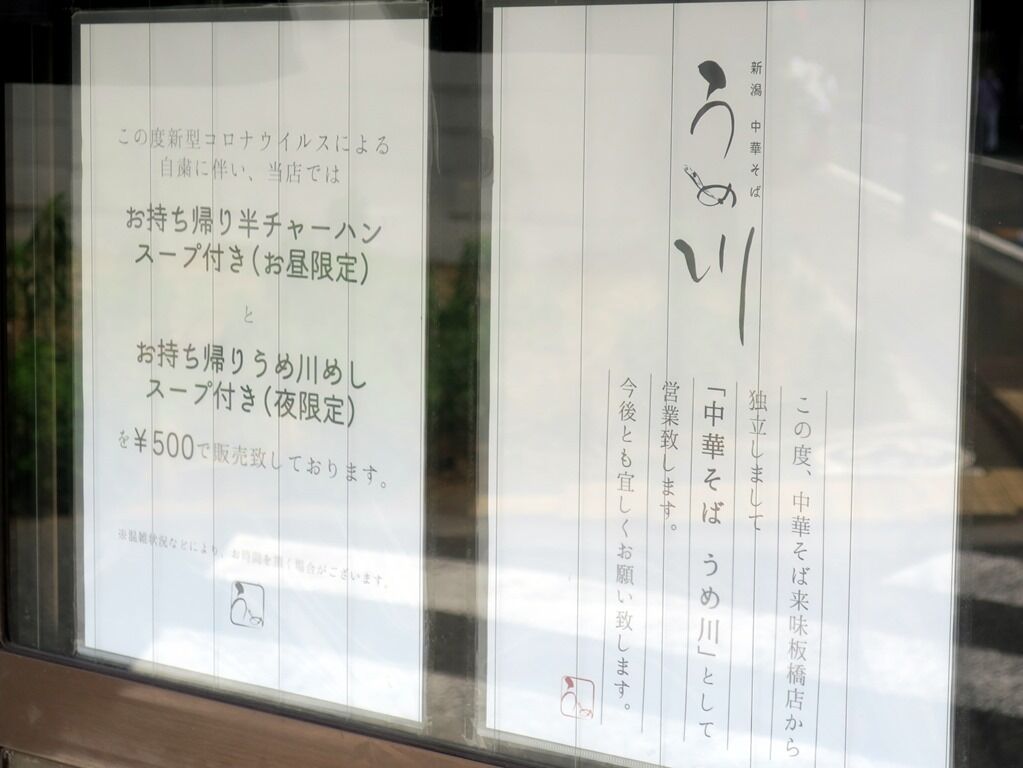 この度新型コロナウイルスによる
自粛に伴い、当店では
お持ち帰り半チャーハン
スープ付き(お昼限定)
と
お持ち帰りうめ川めし
スープ付き(夜限定)
を¥500で販売致しております。
※混雑状況などにより、お時間を頂く場合がございます。
うめ
新潟 中華そば
うめ川
この度、中華そば来味板橋店から
独立しまして
「中華そば うめ川」として
営業致します。
今後とも宜しくお願い致します。
うめ